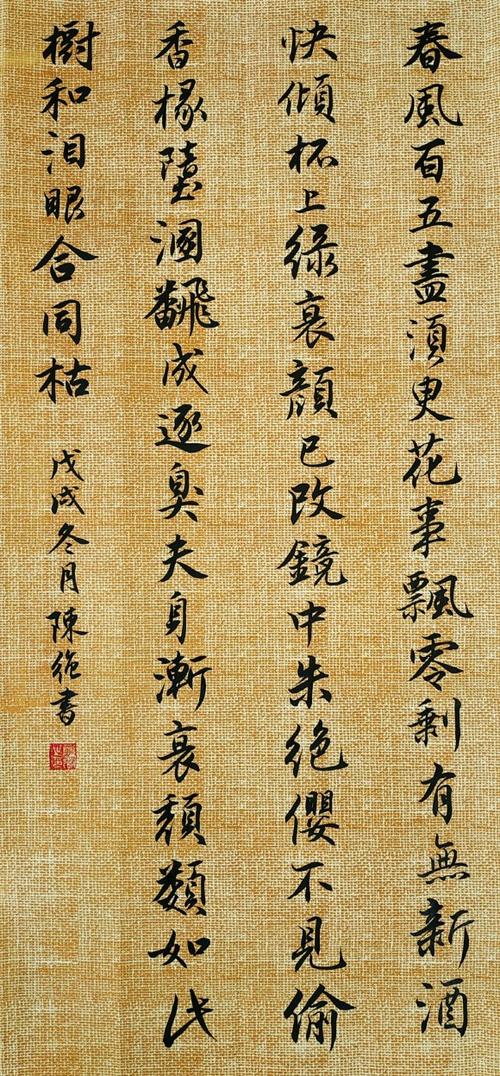 春風百五盡須臾花事飄零剩有無新酒
快傾杯上綠衰顏已改鏡中朱絕纓不見偷
香椽墮溷飜成逐臭夫身漸衰頹類如此
樹和泪眼合同枯
戊戌冬月陳書